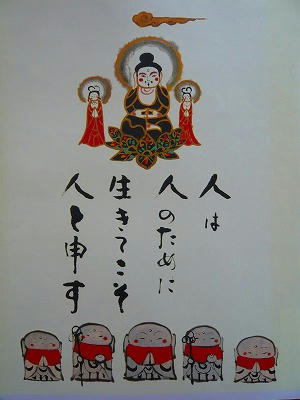 人は
人のために
生きてこそ
人と申す